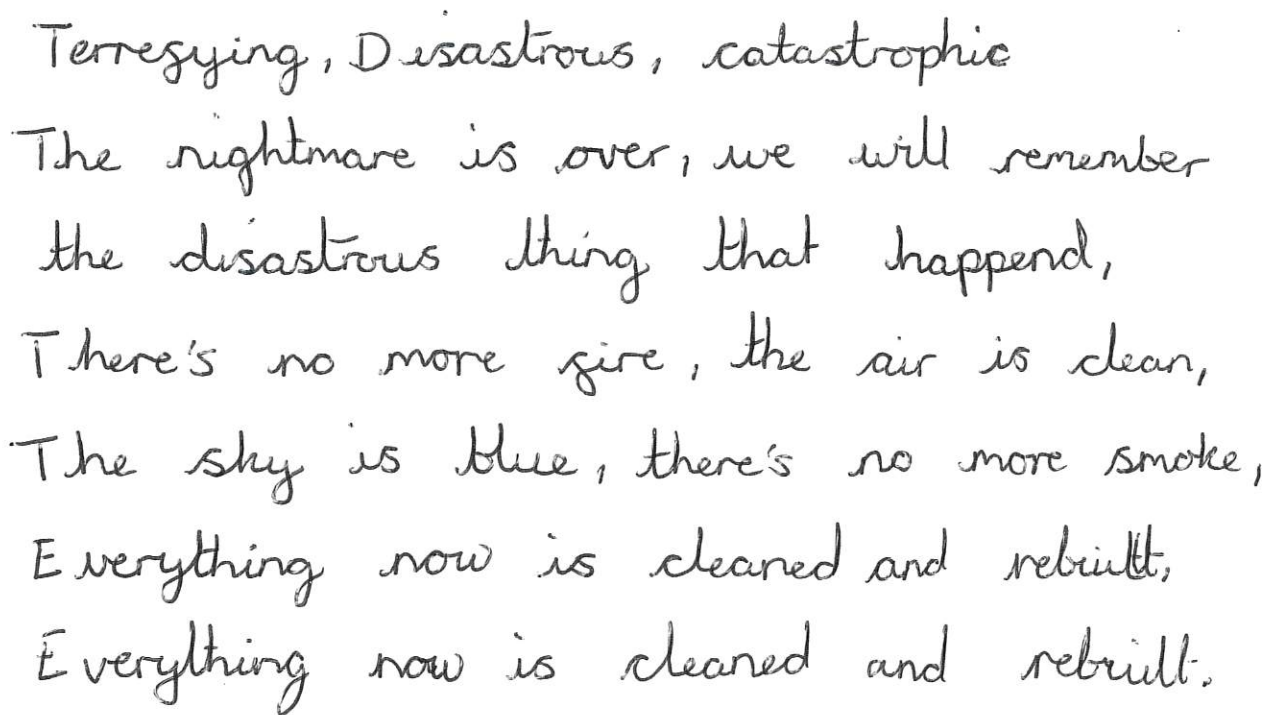 Terrefying, Disastrous, catastrophic
The nightmare is over, we will remember
the disastrous thing that happend,
There's no more fire, the air is clean,
The sky is blue, there's no more smoke,
Everything now is cleaned and rebuilt,
Everything now is cleaned and rebuilt.